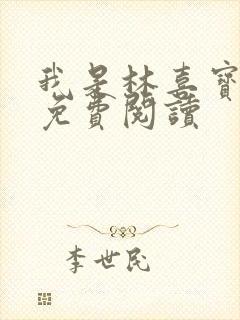 我是林喜寶
免費閱讀
李世民